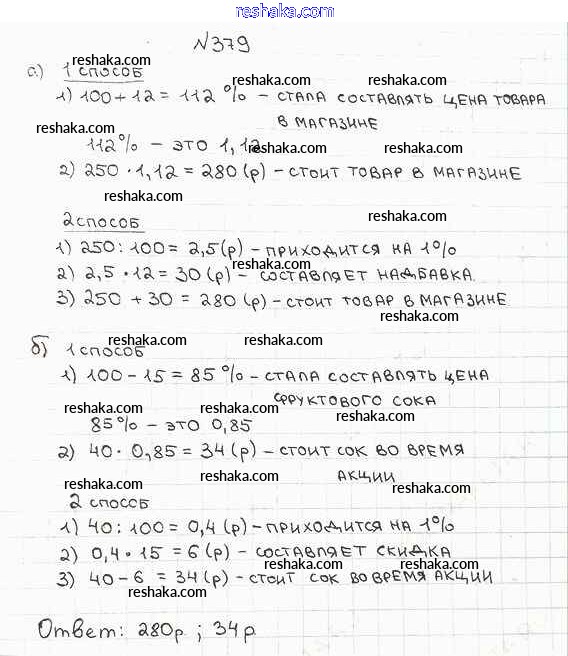 reshaka.com
№379
reshaka.com
а) 1 способ
reshaka.com reshaka.com
1) 100 + 12 = 112 % – стала составлять цена товара
в магазине
reshaka.com
112% – это 1,12
reshaka.com reshaka.com
2) 250 · 1,12 = 280 (р) – стоит товар в магазине
reshaka.com
2 способ
reshaka.com
1) 250 : 100 = 2,5 (р) – приходится на 1%
reshaka.com
2) 2,5 · 12 = 30 (р) – составляет надбавка
3) 250 + 30 = 280 (р) – стоит товар в магазине
reshaka.com
reshaka.com reshaka.com
б) 1 способ
1) 100 – 15 = 85 % – стала составлять цена
фруктового сока
reshaka.com reshaka.com
reshaka.com
85% – это 0,85
2) 40 · 0,85 = 34 (р) – стоит сок во время
акции
reshaka.com
reshaka.com reshaka.com
2 способ
1) 40 : 100 = 0,4 (р) – приходится на 1%
2) 0,4 · 15 = 6 (р) – составляет скидка
reshaka.com reshaka.com
3) 40 – 6 = 34 (р) – стоит сок во время акции
reshaka.com reshaka.com
Ответ: 280р ; 34р